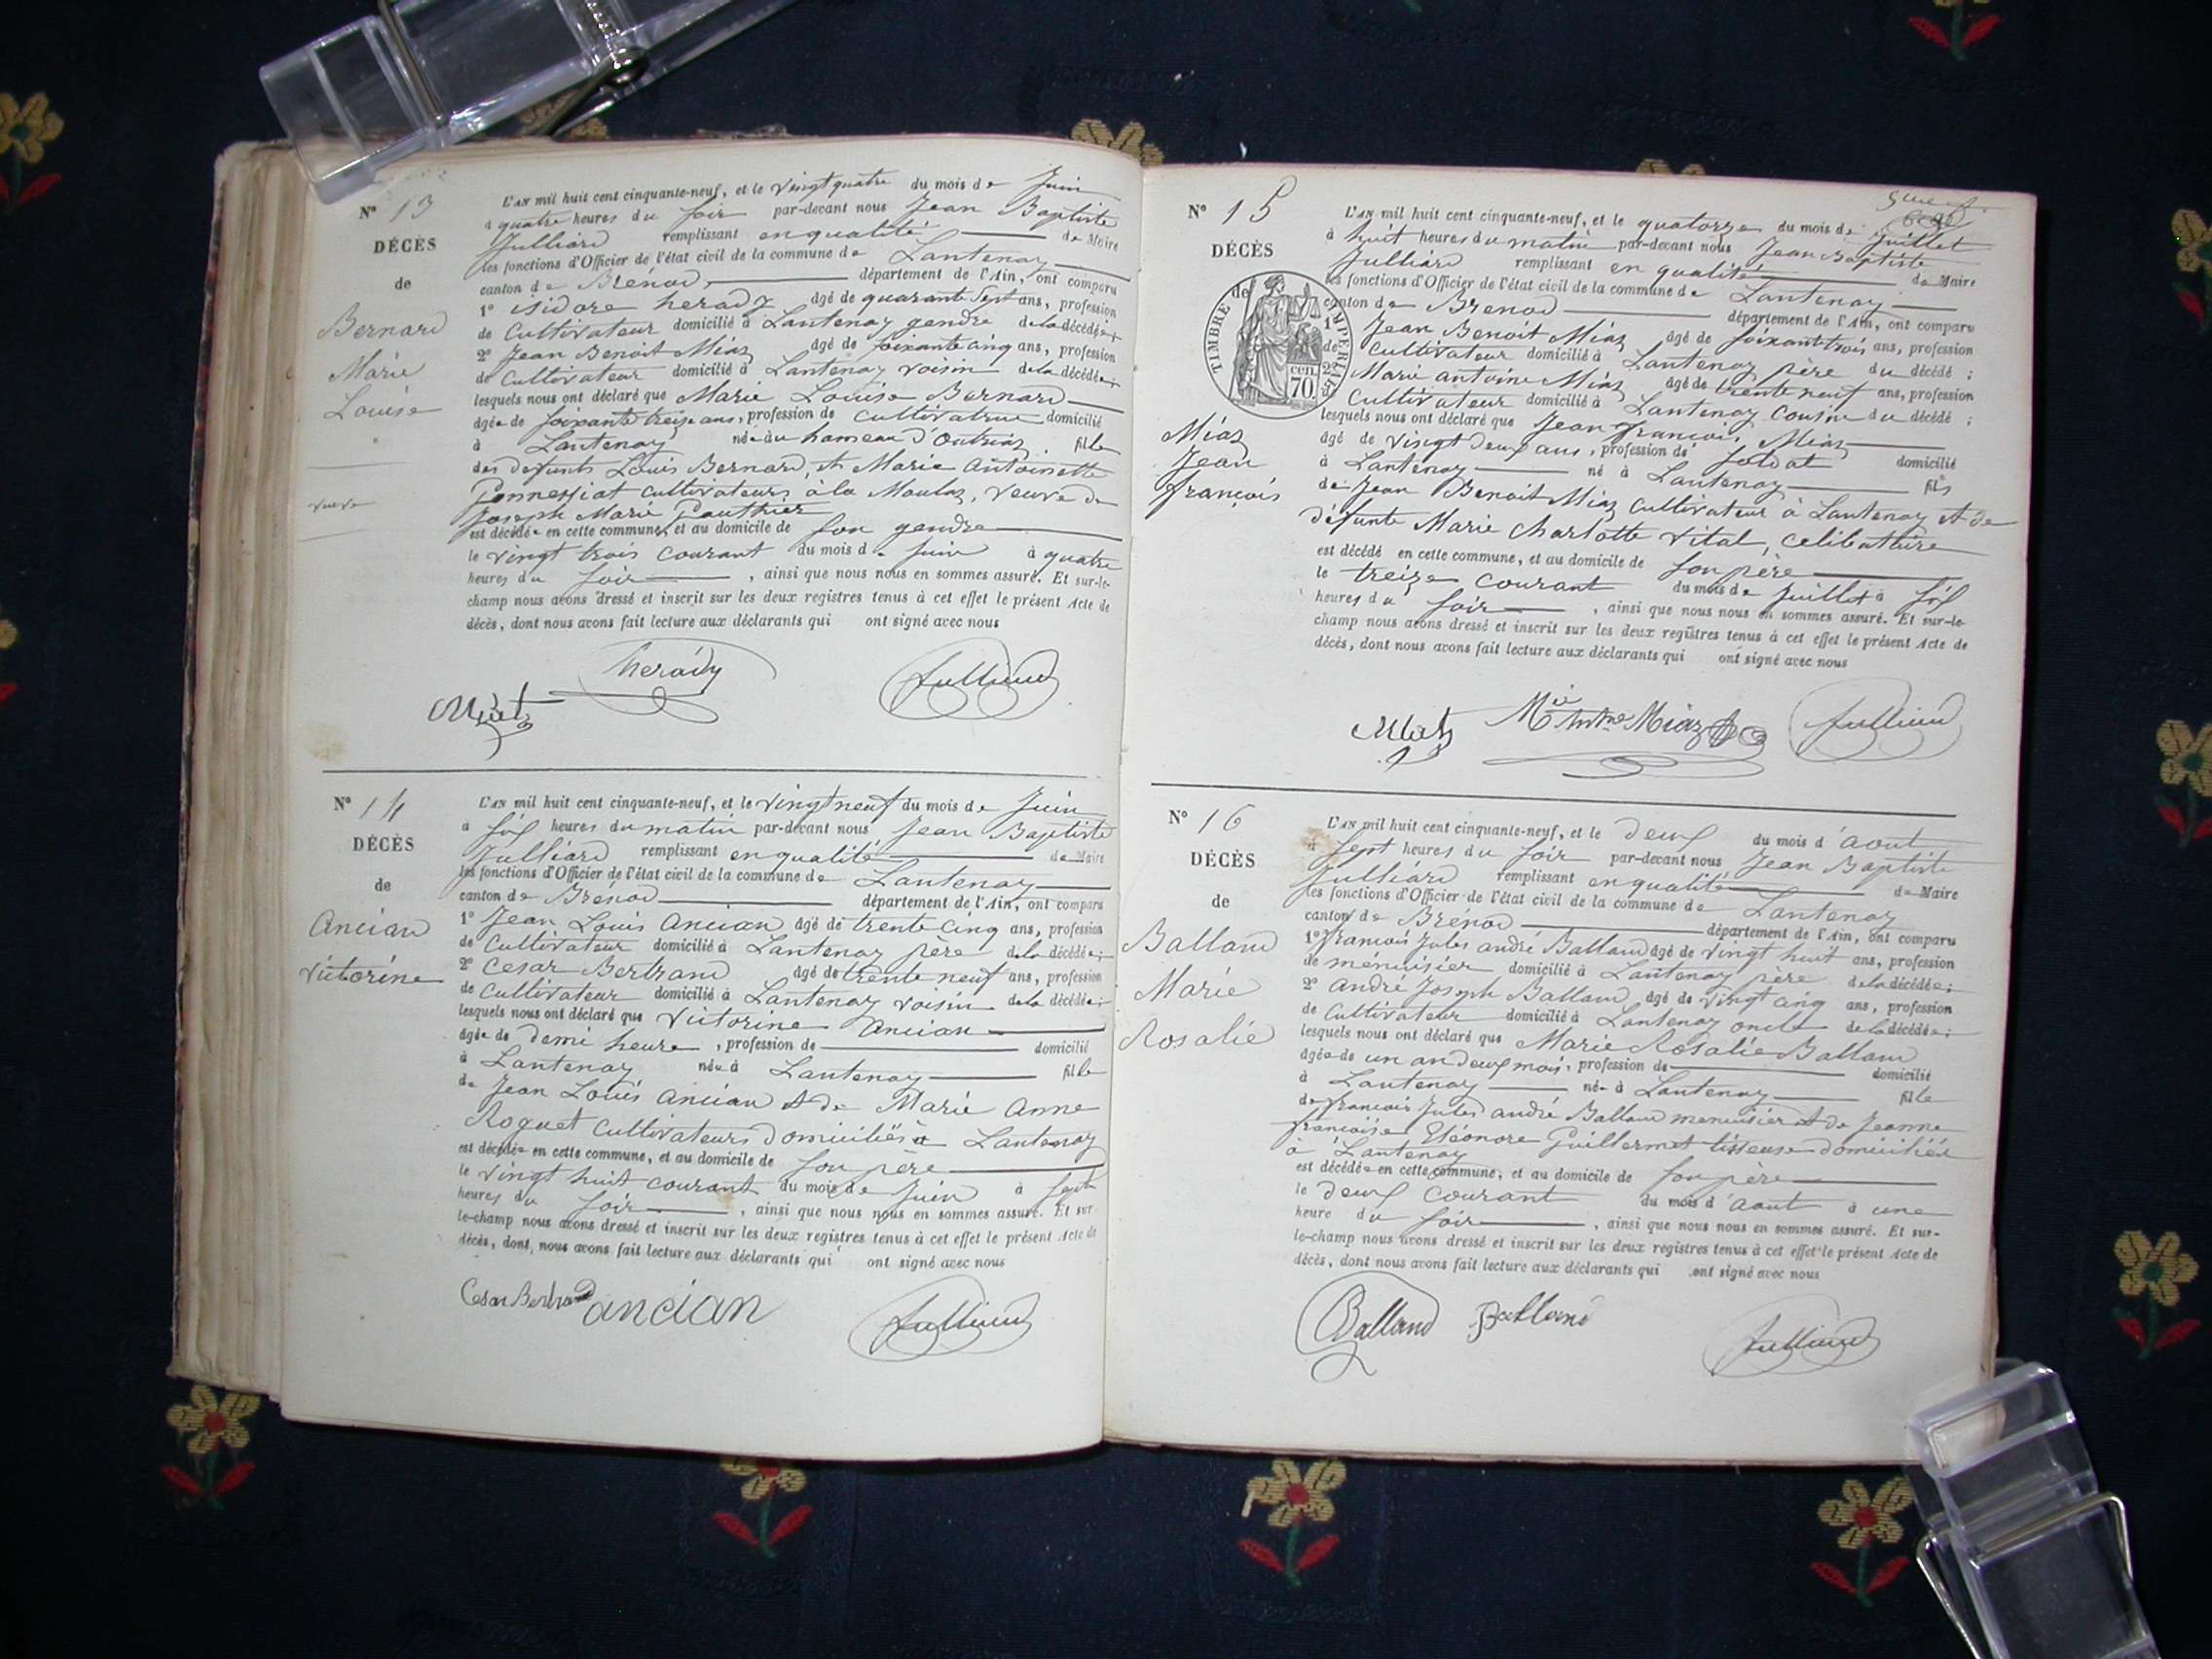 N° 13
DÉCÈS
de
Bernard
Marie
Louise
veuve
L'AN mil huit cent cinquante-neuf, et le vingt quatre du mois de Juin
à quatre heures du soir par-devant nous Jean Baptiste
Julliard remplissant en qualité de Maire
les fonctions d'Officier de l'état civil de la commune de Lantenay
canton de Brénod, département de l'Ain, ont comparu
1° isidore herady âgé de quarante sept ans, profession
de Cultivateur domicilié à Lantenay gendre de la décédée
2° Jean Benoit Miaz âgé de soixante cinq ans, profession
de Cultivateur domicilié à Lantenay voisin de la décédée;
lesquels nous ont déclaré que Marie Louise Bernard
âgée de soixante treize ans, profession de cultivatrice domicilié
à Lantenay née du hameau d'Outriaz fille
des defunts Louis Bernard, et Marie Antoinette
Ponnessiat Cultivateurs à la Moulaz, veuve de
Joseph Marie Gauthier
est décédée en cette commune, et au domicile de son gendre
le vingt trois courant du mois de Juin à quatre
heures du soir, ainsi que nous nous en sommes assuré. Et sur-le-
champ nous avons dressé et inscrit sur les deux registres tenus à cet effet le présent Acte de
décès, dont nous avons fait lecture aux déclarants qui ont signé avec nous
herady
Julliard
Miaz
N° 14
DÉCÈS
de
Ancian
Victorine
L'AN mil huit cent cinquante-neuf, et le vingt neuf du mois de Juin
à six heures du matin par-devant nous Jean Baptiste
Julliard remplissant en qualité de Maire
les fonctions d'Officier de l'état civil de la commune de Lantenay
canton de Brénod département de l'Ain, ont comparu
1° Jean Louis Ancian âgé de trente cinq ans, profession
de Cultivateur domicilié à Lantenay père de la décédée;
2° Cesar Bertrand âgé de trente neuf ans, profession
de Cultivateur domicilié à Lantenay voisin de la décédée;
lesquels nous ont déclaré que Victorine Ancian
âgée de demi heure, profession de domicilié
à Lantenay née à Lantenay fille
de Jean Louis Ancian et de Marie Anne
Roguet Cultivateurs domiciliés à Lantenay
est décédée en cette commune, et au domicile de son père
le vingt huit courant du mois de Juin à sept
heures du soir, ainsi que nous nous en sommes assuré. Et sur
le-champ nous avons dressé et inscrit sur les deux registres tenus à cet effet le présent Acte de
décès, dont nous avons fait lecture aux déclarants qui ont signé avec nous
Cesar Bertrand ancian Julliard
N° 15
DÉCÈS
TIMBRE IMPERIAL
de
cen.
70.
Miaz
Jean
françois
L'AN mil huit cent cinquante-neuf, et le quatorze du mois de Juillet
à huit heures du matin par-devant nous Jean Baptiste
Julliard remplissant en qualité de Maire
les fonctions d'Officier de l'état civil de la commune de Lantenay
canton de Brenod département de l'Ain, ont comparu
1° Jean Benoit Miaz âgé de soixante trois ans, profession
de Cultivateur domicilié à Lantenay père du décédé;
2° Marie antoine Miaz âgé de trente neuf ans, profession
de Cultivateur domicilié à Lantenay Cousin du décédé;
lesquels nous ont déclaré que Jean françois Miaz
âgé de vingt deux ans, profession de soldat domicilié
à Lantenay né à Lantenay fils
de Jean Benoit Miaz Cultivateur à Lantenay et de
défunte Marie Charlotte Vital, celibattaire
est décédé en cette commune, et au domicile de son père
le treize courant du mois de Juillet à six
heures du soir, ainsi que nous nous en sommes assuré. Et sur-le-
champ nous avons dressé et inscrit sur les deux registres tenus à cet effet le présent Acte de
décès, dont nous avons fait lecture aux déclarants qui ont signé avec nous
Miaz Mie Antne Miaz Julliard
N° 16
DÉCÈS
de
Balland
Marie
Rosalie
L'AN mil huit cent cinquante-neuf, et le deux du mois d'aout
à sept heures du soir par-devant nous Jean Baptiste
Julliard remplissant en qualité de Maire
les fonctions d'Officier de l'état civil de la commune de Lantenay
canton de Brénod département de l'Ain, ont comparu
1° françois Jules andré Balland âgé de vingt huit ans, profession
de ménuisier domicilié à Lantenay père de la décédée;
2° andré Joseph Balland âgé de vingt cinq ans, profession
de Cultivateur domicilié à Lantenay oncle de la décédée;
lesquels nous ont déclaré que Marie Rosalie Balland
âgée de un an deux mois, profession de domicilié
à Lantenay née à Lantenay fille
de françois Jules andré Balland menuisier et de Jeanne
françoise Eléonore Guillermet tisseuse domiciliés
à Lantenay
est décédée en cette commune, et au domicile de son père
le deux courant du mois d'aout à une
heure du soir, ainsi que nous nous en sommes assuré. Et sur-
le-champ nous avons dressé et inscrit sur les deux registres tenus à cet effet le présent Acte de
décès, dont nous avons fait lecture aux déclarants qui ont signé avec nous
Balland Balland Julliard